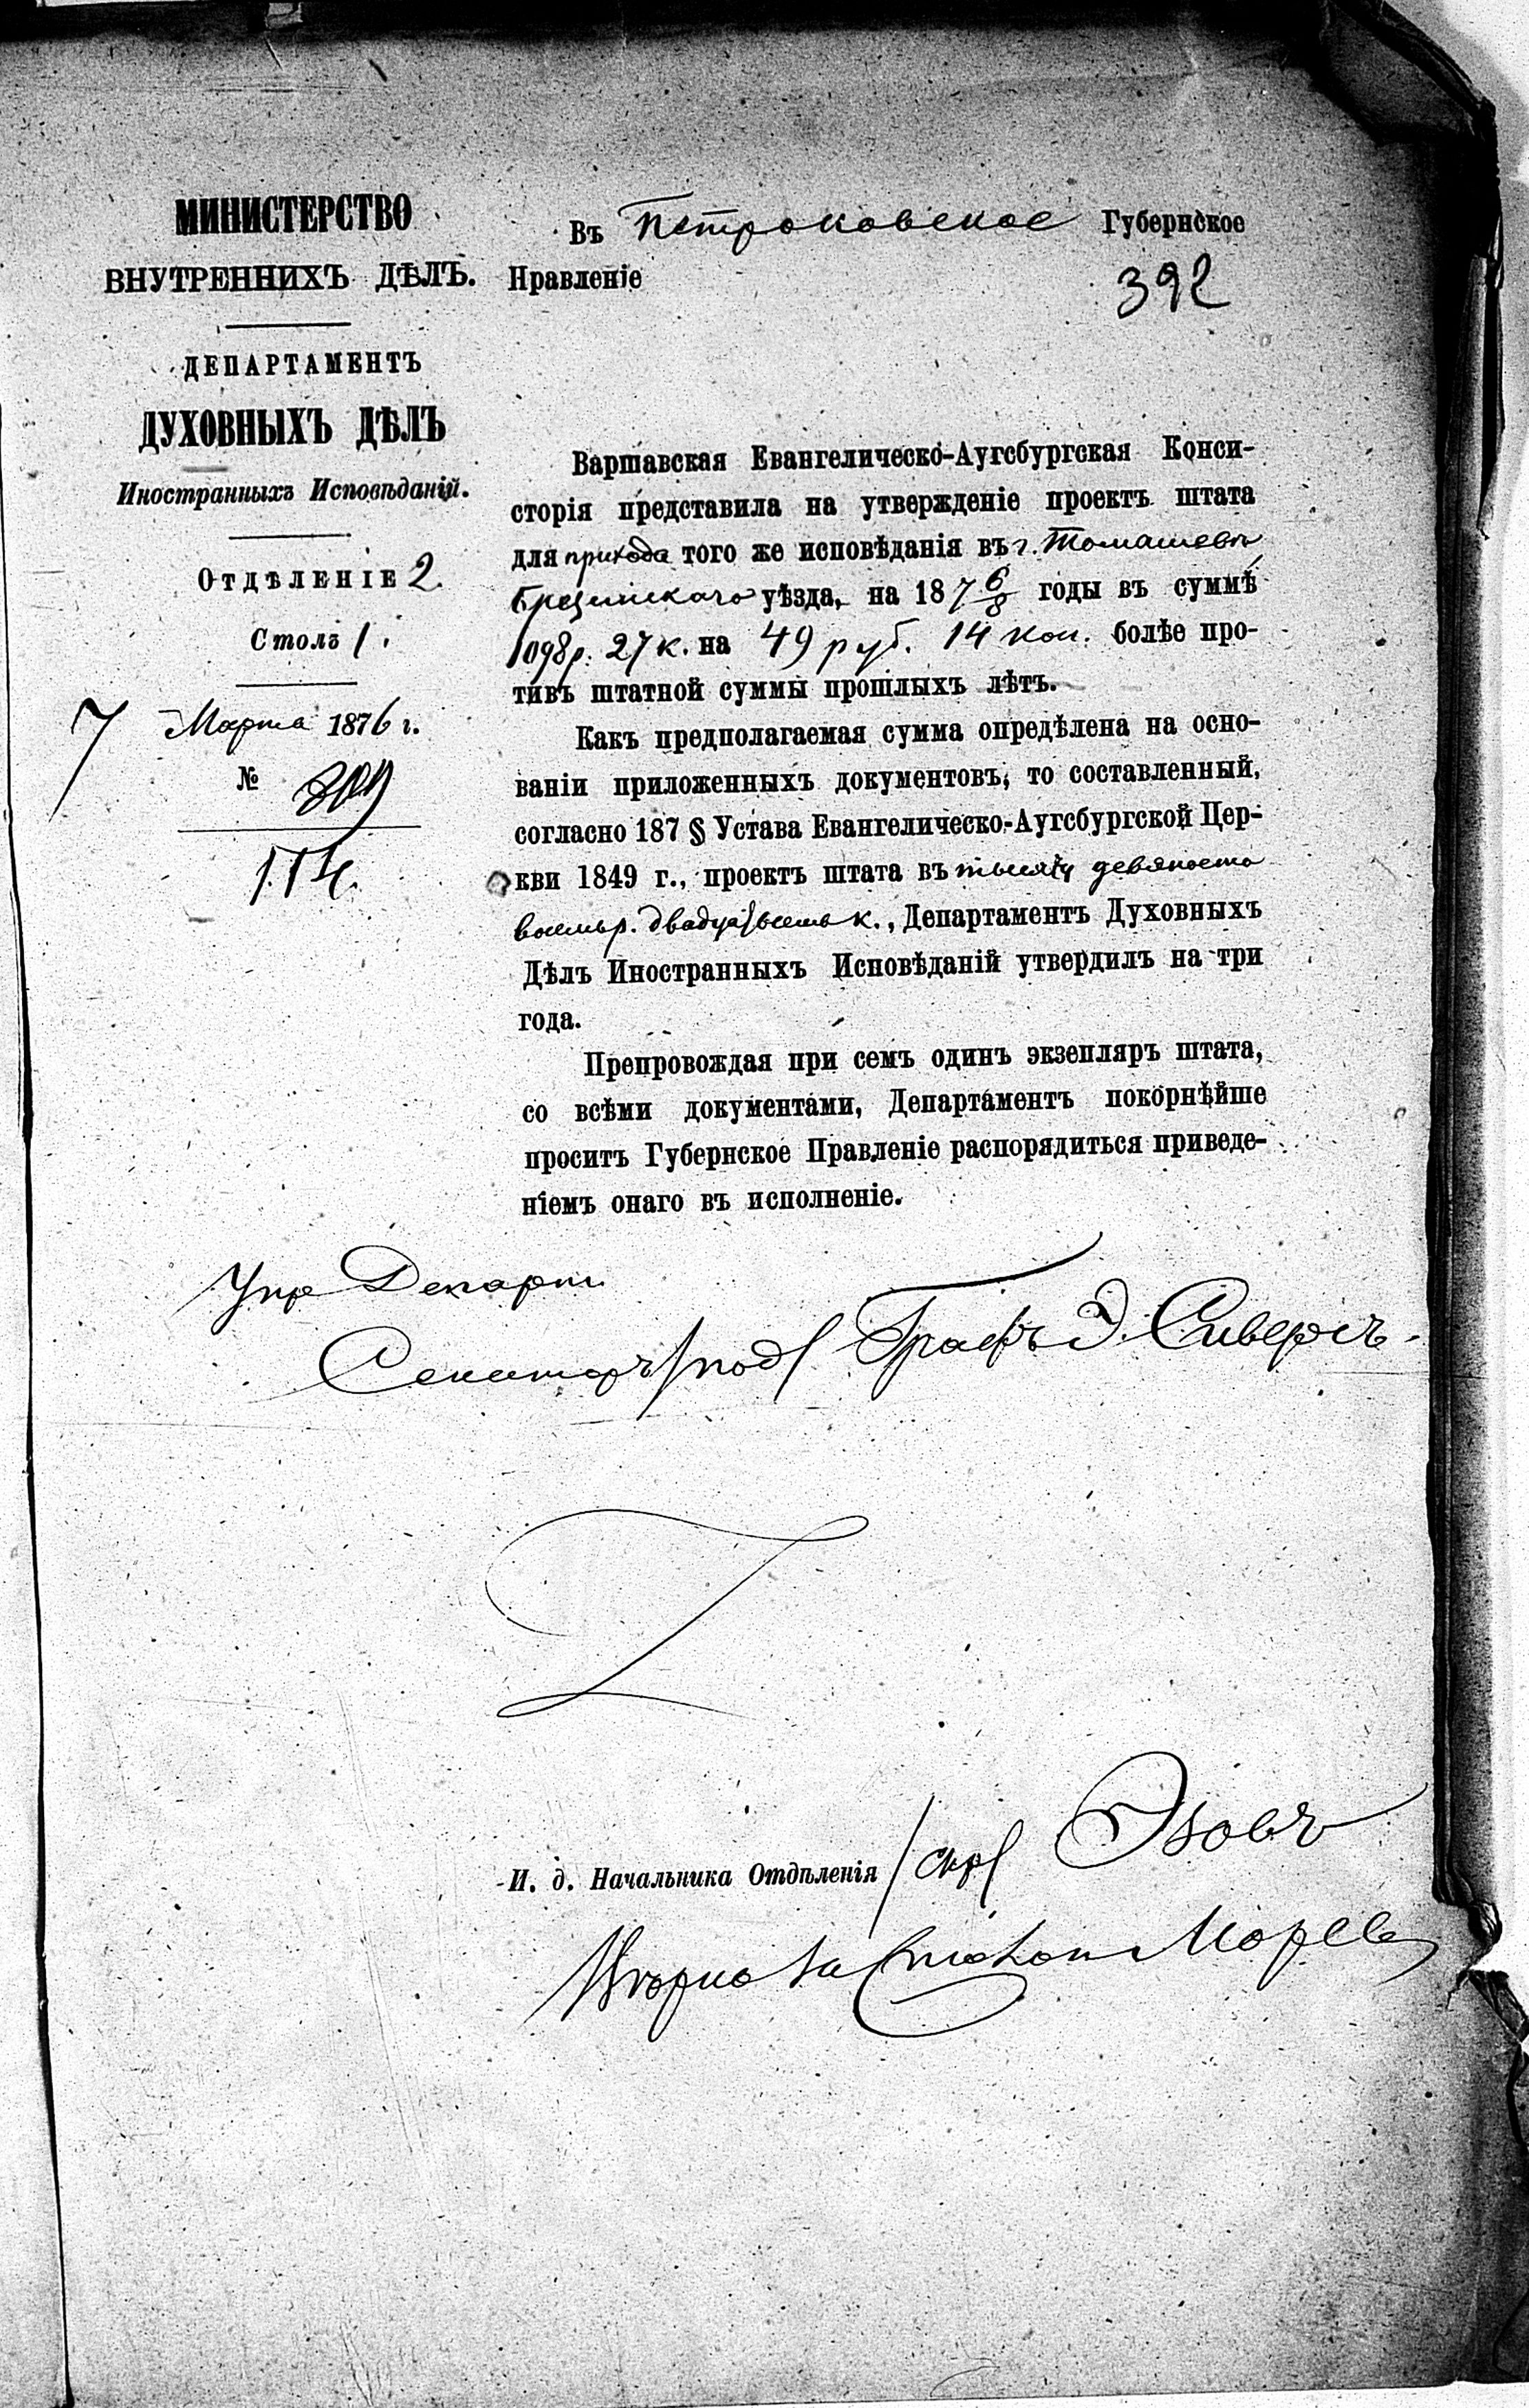 МИНИСТЕРСТВО
ВНУТРЕННИХЪ ДѢЛЪ.
ДЕПАРТАМЕНТЪ
ДУХОВНЫХЪ ДѢЛЪ
Иностранныхъ Исповѣданій.
Отдѣленіе 2.
Столъ 1.
7 Марта 1876 г.
№
174.
Въ Петроковское Губернское
Правленіе
392
Варшавская Евангелическо-Аугсбургская Конси-
сторія представила на утвержденіе проектъ штата
для прихода того же исповѣданія въ г. Томашевѣ
Брезинскаго уѣзда, на 187 6/8 годы въ суммѣ
1098 р. 27 к. на 49 руб. 14 коп. болѣе про-
тивъ штатной суммы прошлыхъ лѣтъ.
Какъ предполагаемая сумма опредѣлена на осно-
ваніи приложенныхъ документовъ, то составленный,
согласно 187 § Устава Евангелическо-Аугсбургской Цер-
кви 1849 г., проектъ штата въ тысячу девяносто
восемь р. двадцать семь к., Департаментъ Духовныхъ
Дѣлъ Иностранныхъ Исповѣданій утвердилъ на три
года.
Препровождая при семъ одинъ экзепляръ штата,
со всѣми документами, Департаментъ покорнѣйше
проситъ Губернское Правленіе распорядиться приведе-
ніемъ онаго въ исполненіе.
Упр Департ.
Сенаторъ /под/ Графъ Э. Сиверсъ.
И. д. Начальника Отдѣленія /скр/ Эзовъ
Вѣрно за